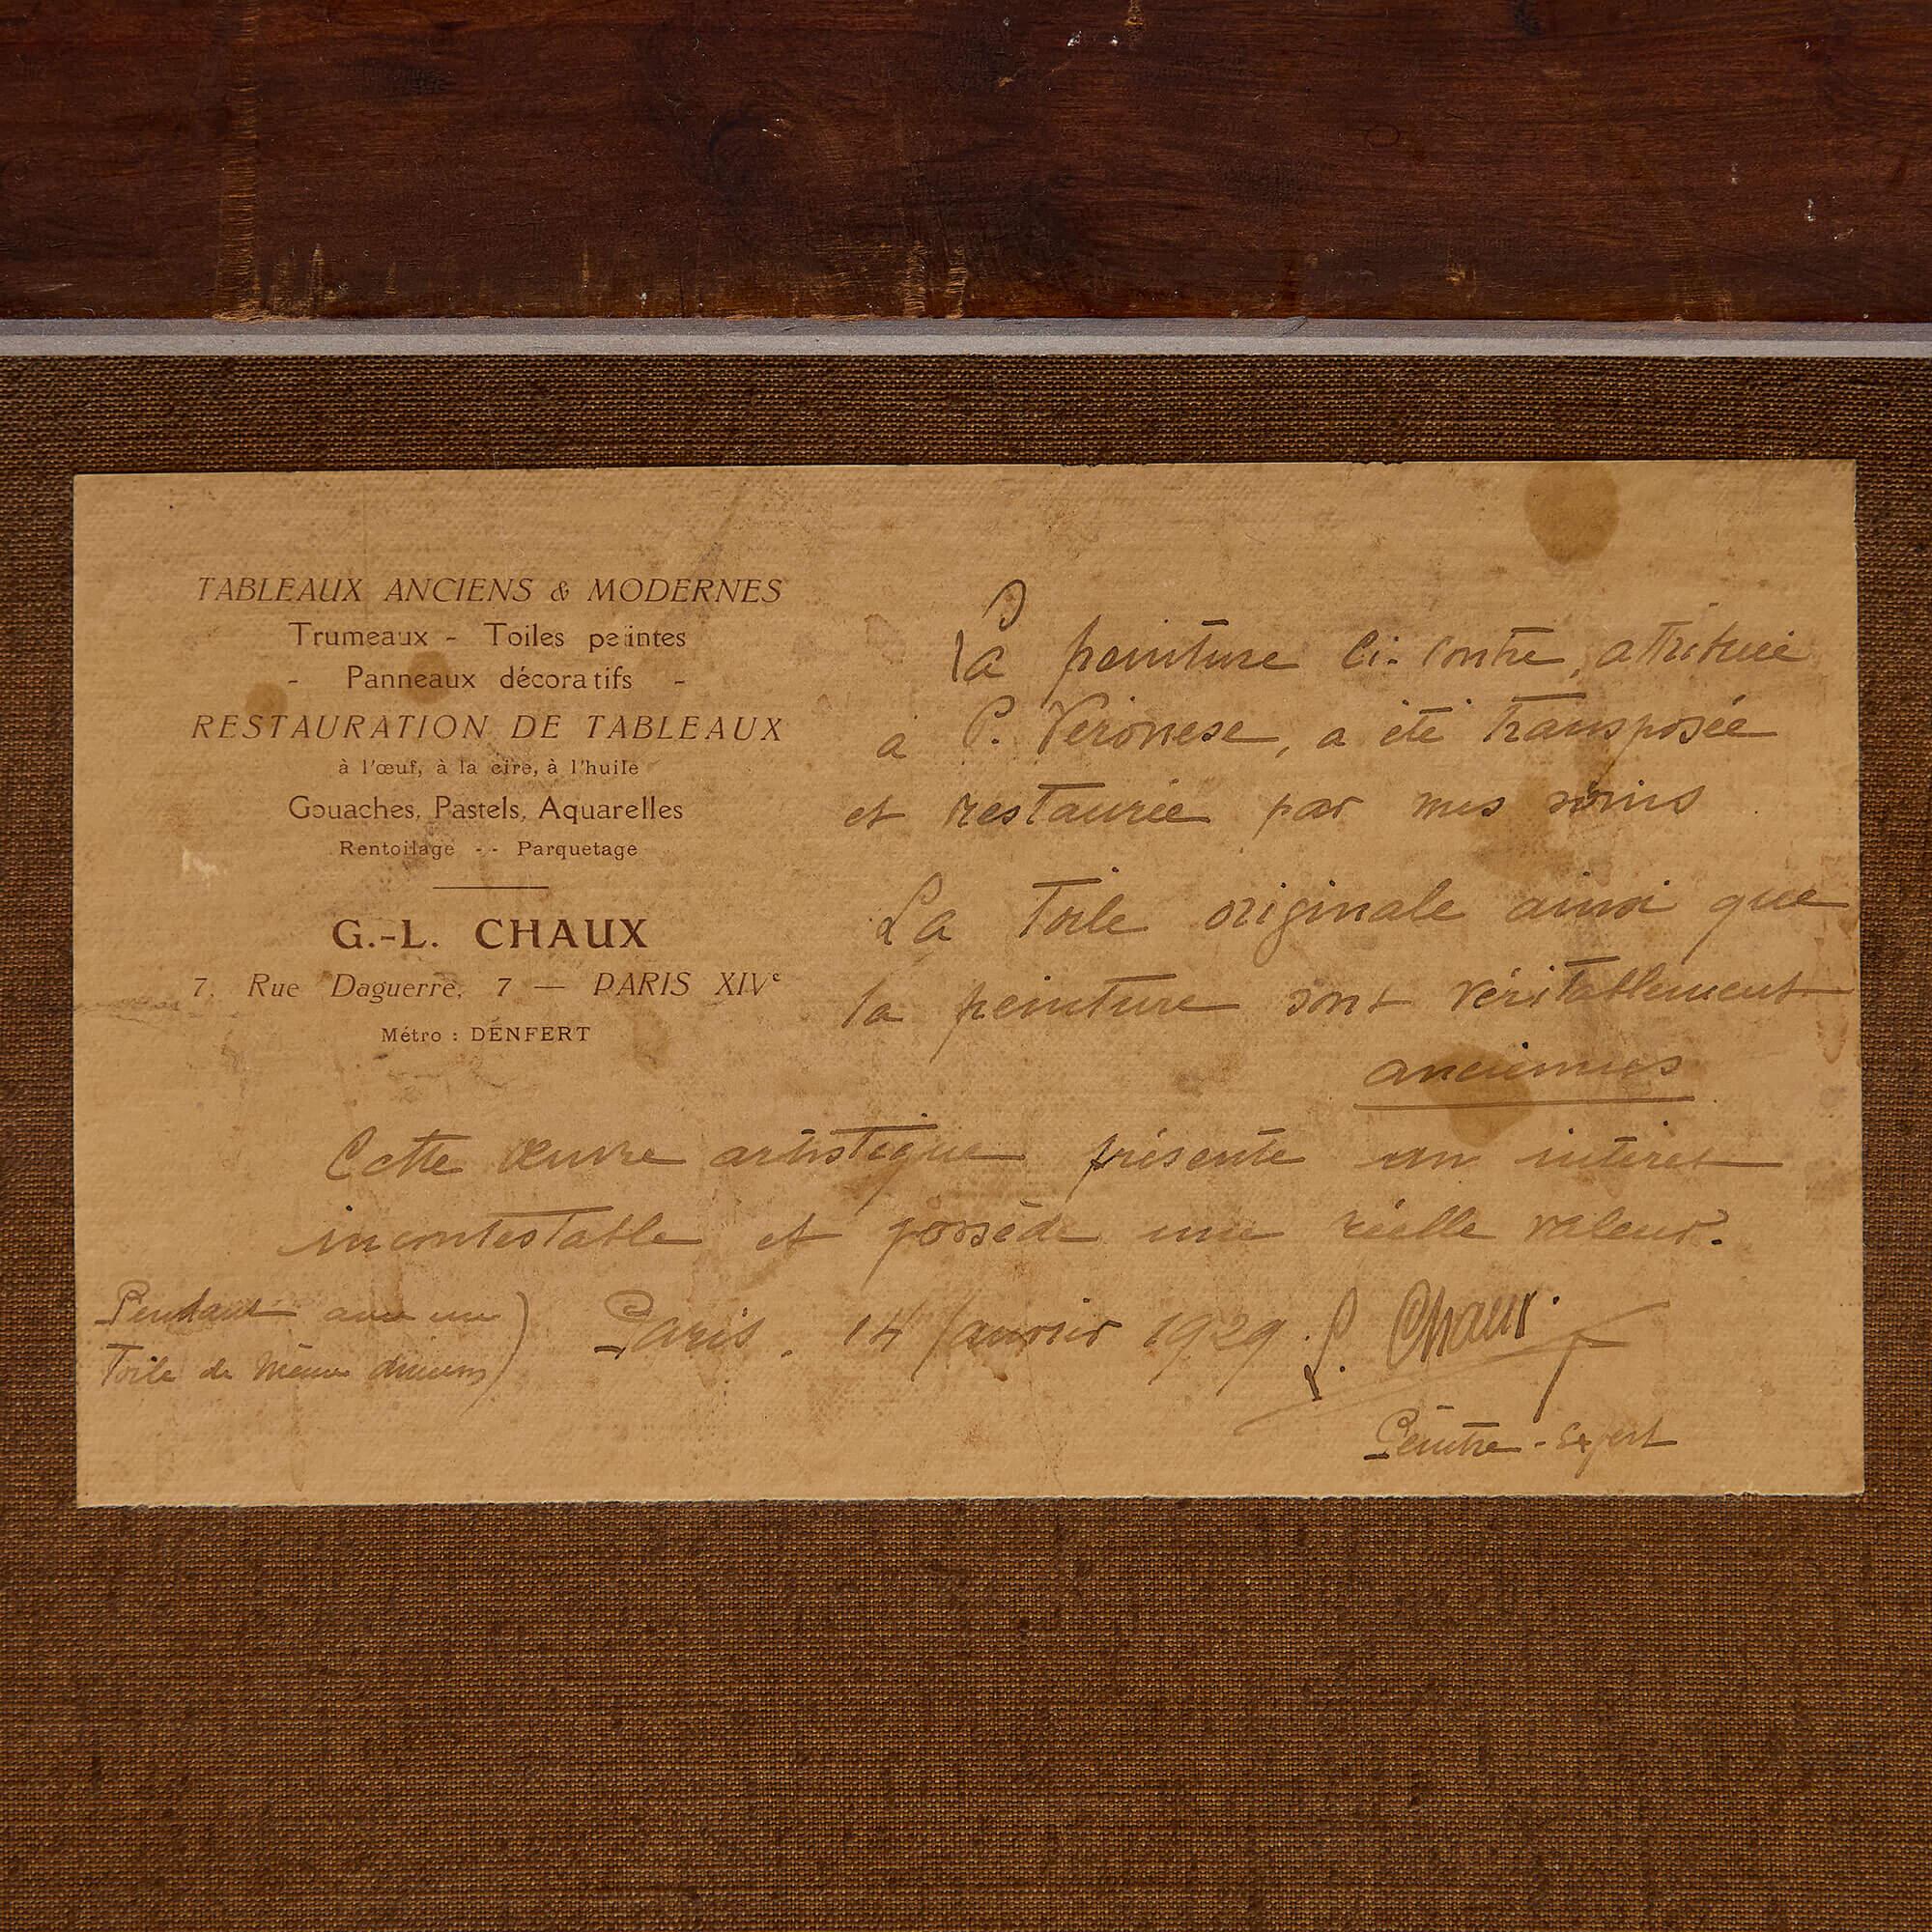 TABLEAUX ANCIENS & MODERNES
Trumeaux - Toiles peintes
- Panneaux décoratifs -
RESTAURATION DE TABLEAUX
à l'œuf, à la cire, à l'huile
Gouaches, Pastels, Aquarelles
Rentoilage - - Parquetage
G.-L. CHAUX
7, Rue Daguerre, 7 — PARIS XIVe
Métro : DENFERT
La peinture ci-contre, attribuée
à P. Véronese, a été transposée
et restaurée par mes soins
La toile originale ainsi que
la peinture sont véritablement
anciennes
Cette œuvre artistique présente un intéret
incontestable et possède une réelle valeur.
Pendant avec une
Toile de même dimens)
Paris, 14 Janvier 1929. Chaux
Peintre-Expert